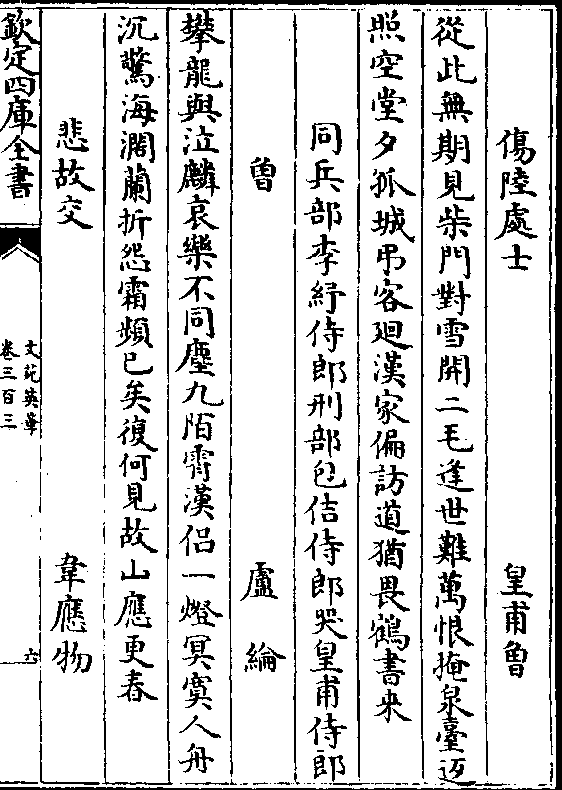 傷陸處士　皇甫曾
從此無期見柴門對雪開二毛逢世難萬恨掩泉臺返
照空堂夕孤城弔客廻漢家偏訪道猶畏鶴書来
同兵部李紓侍郎刑部包佶侍郎哭皇甫侍郎
曽　盧綸
攀龍與泣麟哀樂不同塵九陌霄漢侣一燈冥寞人舟
沉驚海濶蘭折怨霜頻已矣復何見故山應更春
悲故交　韋應物
欽定四庫全書
文苑英華
卷三百三
六